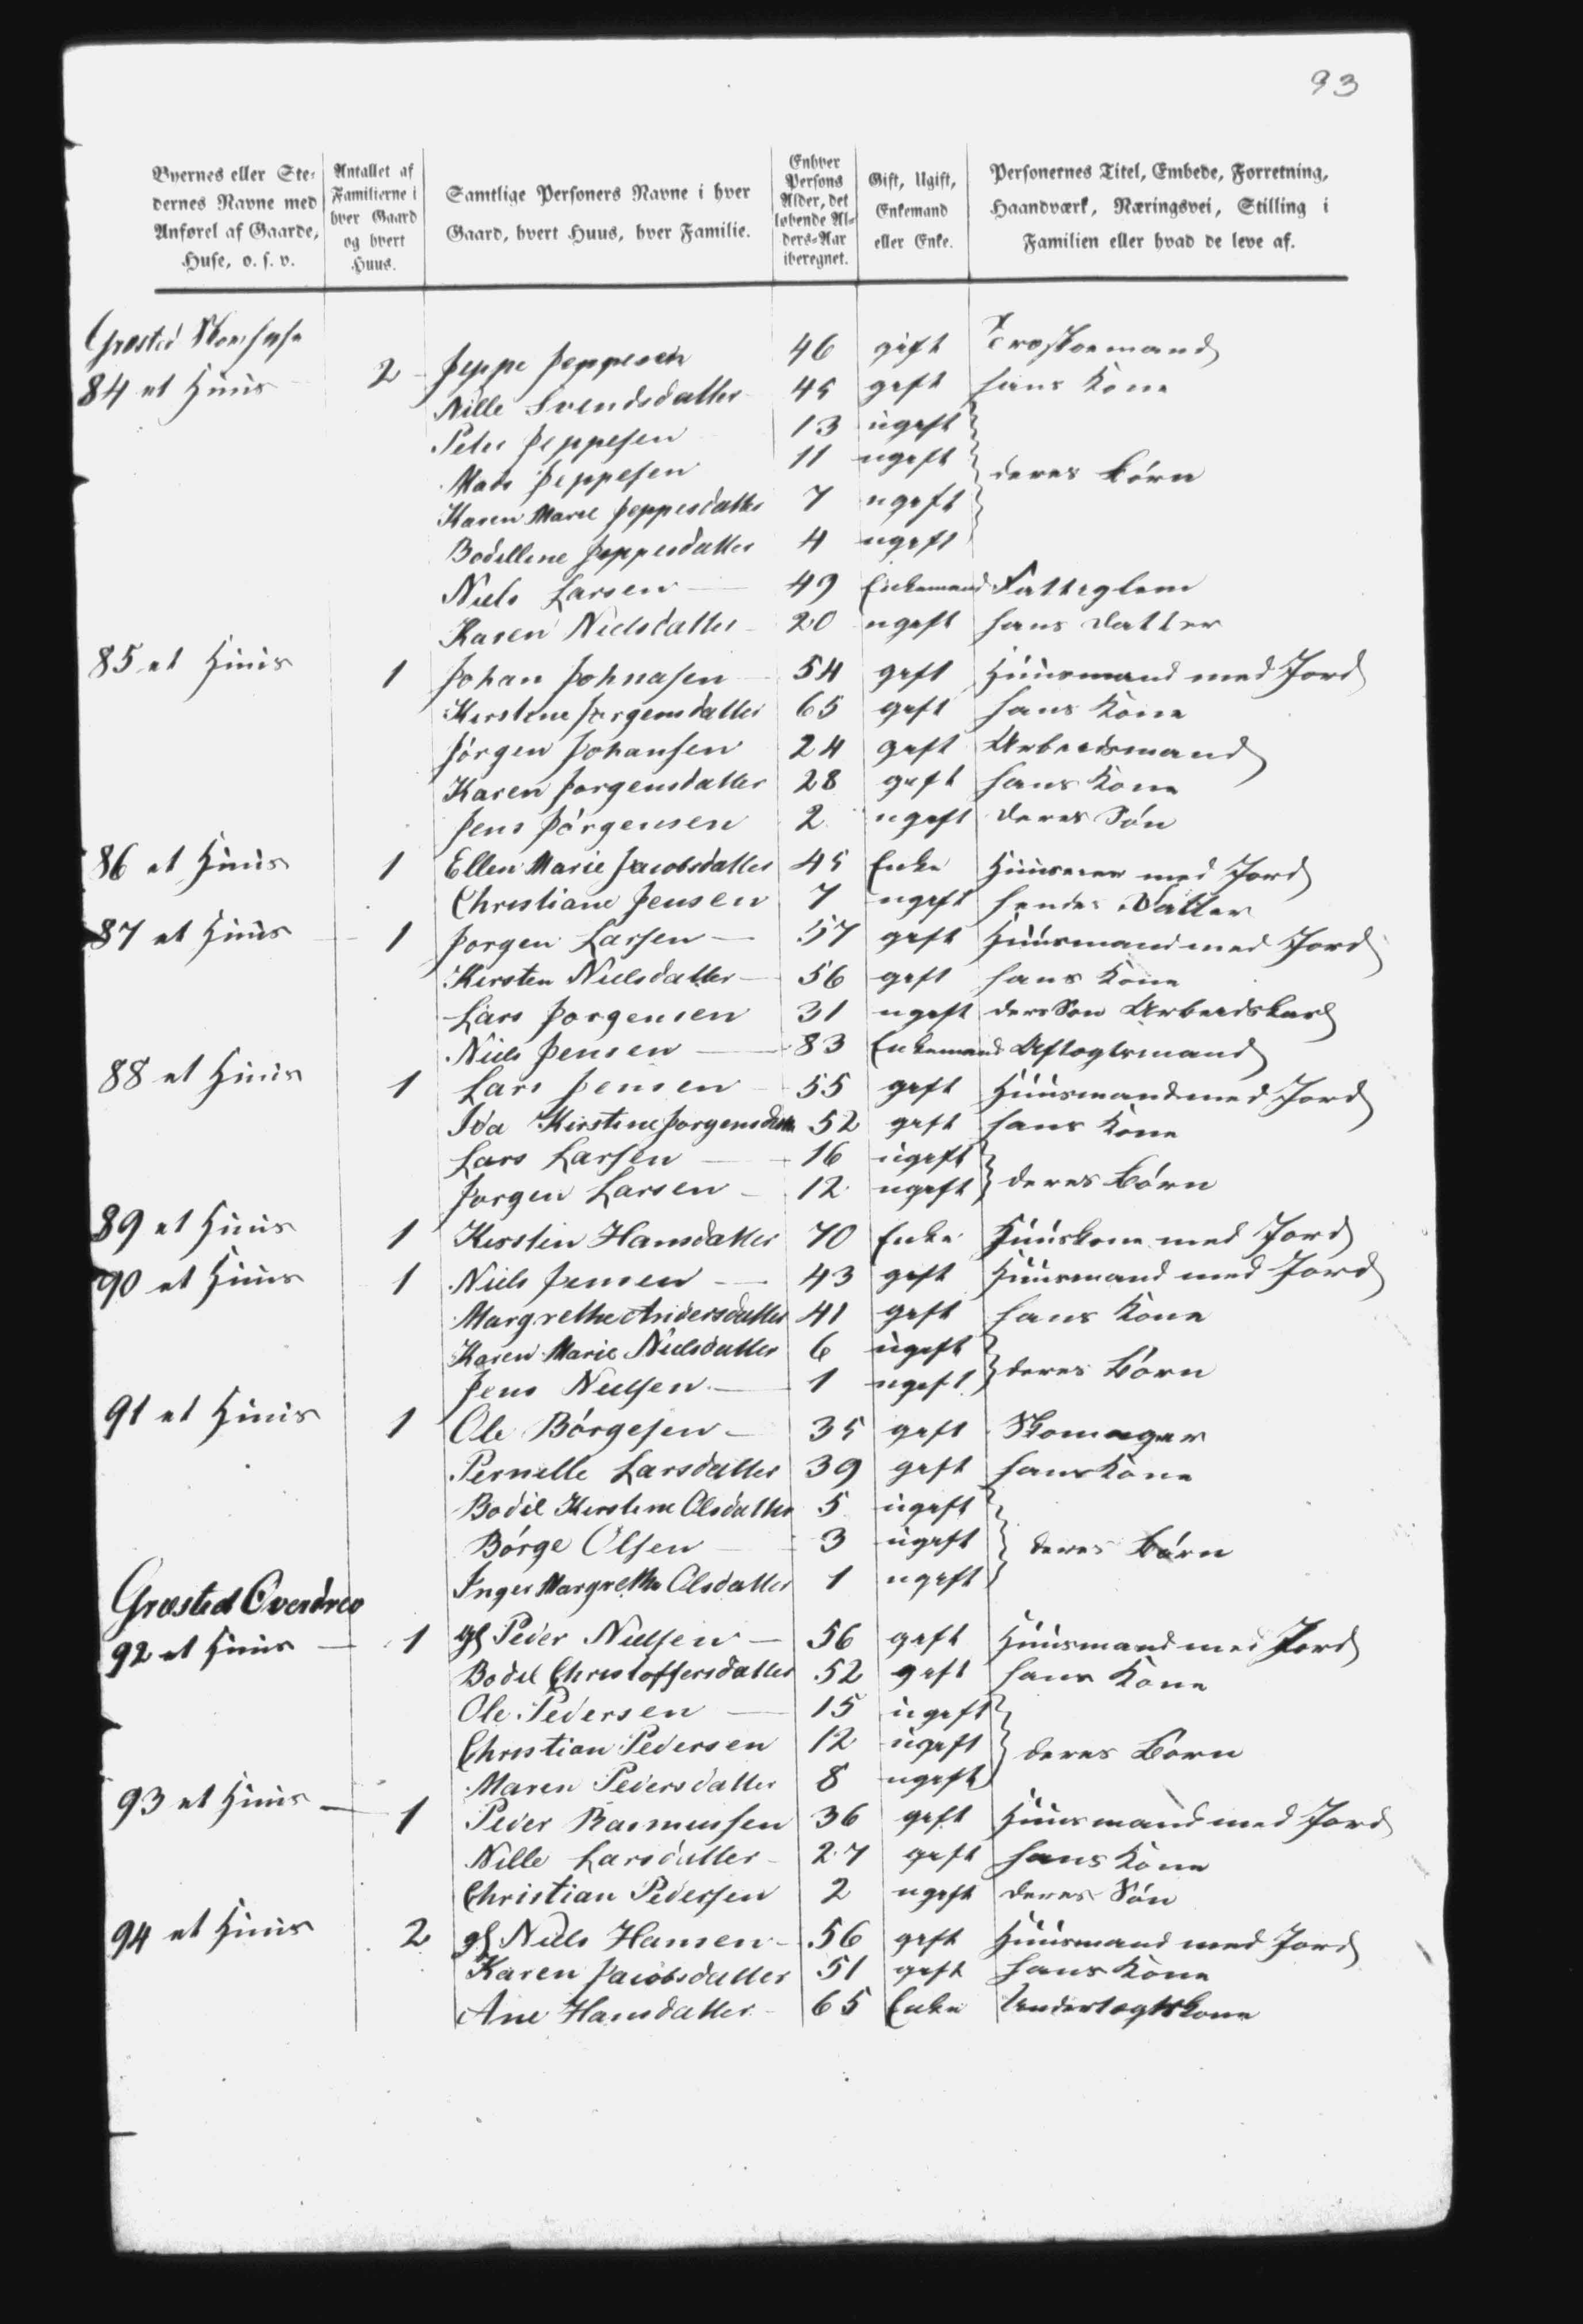 93
Byernes eller Ste- dernes Navne med Anførel af Gaarde, Huse, o. s. v. | Antallet af Familierne i hver Gaard og hvert Huus. | Samtlige Personers Navne i hver Gaard, hvert Huus, hver Familie. | Enhver Persons Alder, det løbende Al- ders-Aar iberegnet. | Gift, Ugift, Enkemand eller Enke. | Personernes Titel, Embede, Forretning, Haandværk, Næringsvei, Stilling i Familien eller hvad de leve af.
Græsted
84 et Huus 2 Jeppe Jeppesen 46 gift Træskoemand
Nille Svendsdatter 45 gift hans Kone
Peter Jeppesen 13 ugift
Mads Jeppesen 11 ugift deres Børn
Karen Marie Jeppesdatter 7 ugift
Bodilline Jeppesdatter 4 ugift
Niels Larsen 49 Enkemand Fattiglem
Karen Nielsdatter 20 ugift hans Datter
85 et Huus 1 Johan Johnasen 54 gift Huusmand med Jord
Kirstine Jørgensdatter 65 gift hans Kone
Jørgen Johansen 24 gift Arbeidsmand
Karen Jorgensdatter 28 gift hans Kone
Jens Jörgensen 2 ugift deres Sön
86 et Huus 1 Ellen Marie Jacobsdatter 45 Enke med Jord
Christiane Jensen 7 ugift hendes Datter
87 et Huus 1 Jorgen Larsen 57 gift Huusmand med Jord
Kirsten Nielsdatter 56 gift hans Kone
Lars Jorgensen 31 ugift ders Son Arbeidskarl
Niels Jensen 83 Enkemand Aftægtsmand
88 et Huus 1 Lars Jensen 55 gift Huusmand med Jord
Ida Kirstine Jorgensdatter 52 gift hans Kone
Lars Larsen 16 ugift
Jorgen Larsen 12 ugift deres Børn
89 et Huus 1 Kirsten Hansdatter 70 Enke Huuskone med Jord
90 et Huus 1 Niels Jensen 43 gift Huusmand med Jord
Margrethe Andersdatter 41 gift hans Kone
Karen Marie Nielsdatter 6 ugift
Jens Nielsen 1 ugift deres Børn
91 et Huus 1 Ole Börgesen 35 gift Skomager
Pernille Larsdatter 39 gift hans Kone
Bodil Kirstine Olsdatter 5 ugift
Börge Olsen 3 ugift deres Børn
Inger Margrethe Olsdatter 1 ugift
Græsted Overdrev
92 et Huus 1 gl Peder Nielsen 56 gift Huusmand med Jord
Bodil Christoffersdatter 52 gift hans Kone
Ole Pedersen 15 ugift
Christian Pedersen 12 ugift deres Børn
Maren Pedersdatter 8 ugift
93 et Huus 1 Peder Rasmussen 36 gift Huusmand med Jord
Nille Larsdatter 27 gift hans Kone
Christian Pedersen 2 ugift deres Sön
94 et Huus 2 gl Niels Hansen 56 gift Huusmand med Jord
Karen Jacobsdatter 51 gift hans Kone
Ane Hansdatter 65 Enke